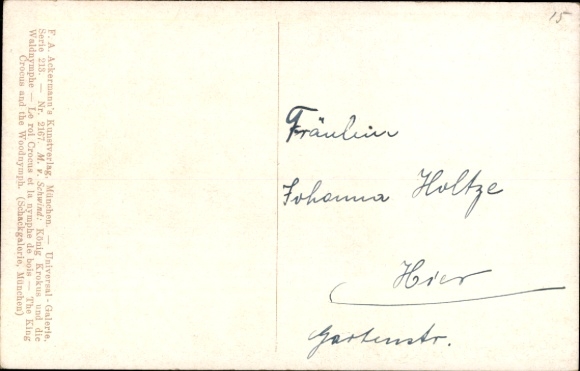 F. A. Ackermann's Kunstverlag, München. — Universal-Galerie.
Serie 213. — Nr. 2167. M. v. Schwind: König Krokus und die
Waldnymphe — Le roi Crocus et la nymphe de bois — The King
Crocus and the Woodnymph. (Schackgalerie, München)
15
Fräulein
Johanna Holtze
Hier
Gartenstr.